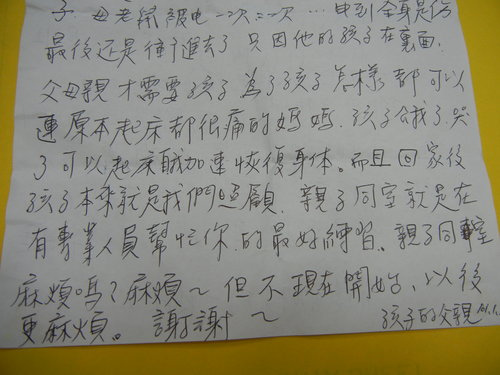 子. 母老鼠被電一次二次 … 電到全身是傷
最後还是往前進去了 只因他的孩子在裏面.
父母親才需要孩子 為了孩子怎樣都可以
連原本起床都很痛的媽媽. 孩子餓了.哭
了可以起床賊加速恢復身体。而且回家後
孩子本來就是我們照顧. 親子同室就是在
有專業人員幫忙你的最好練習. 親子同室
麻煩嗎? 麻煩~ 但不現在開始, 以後
更麻煩。 謝謝~
孩子的父親